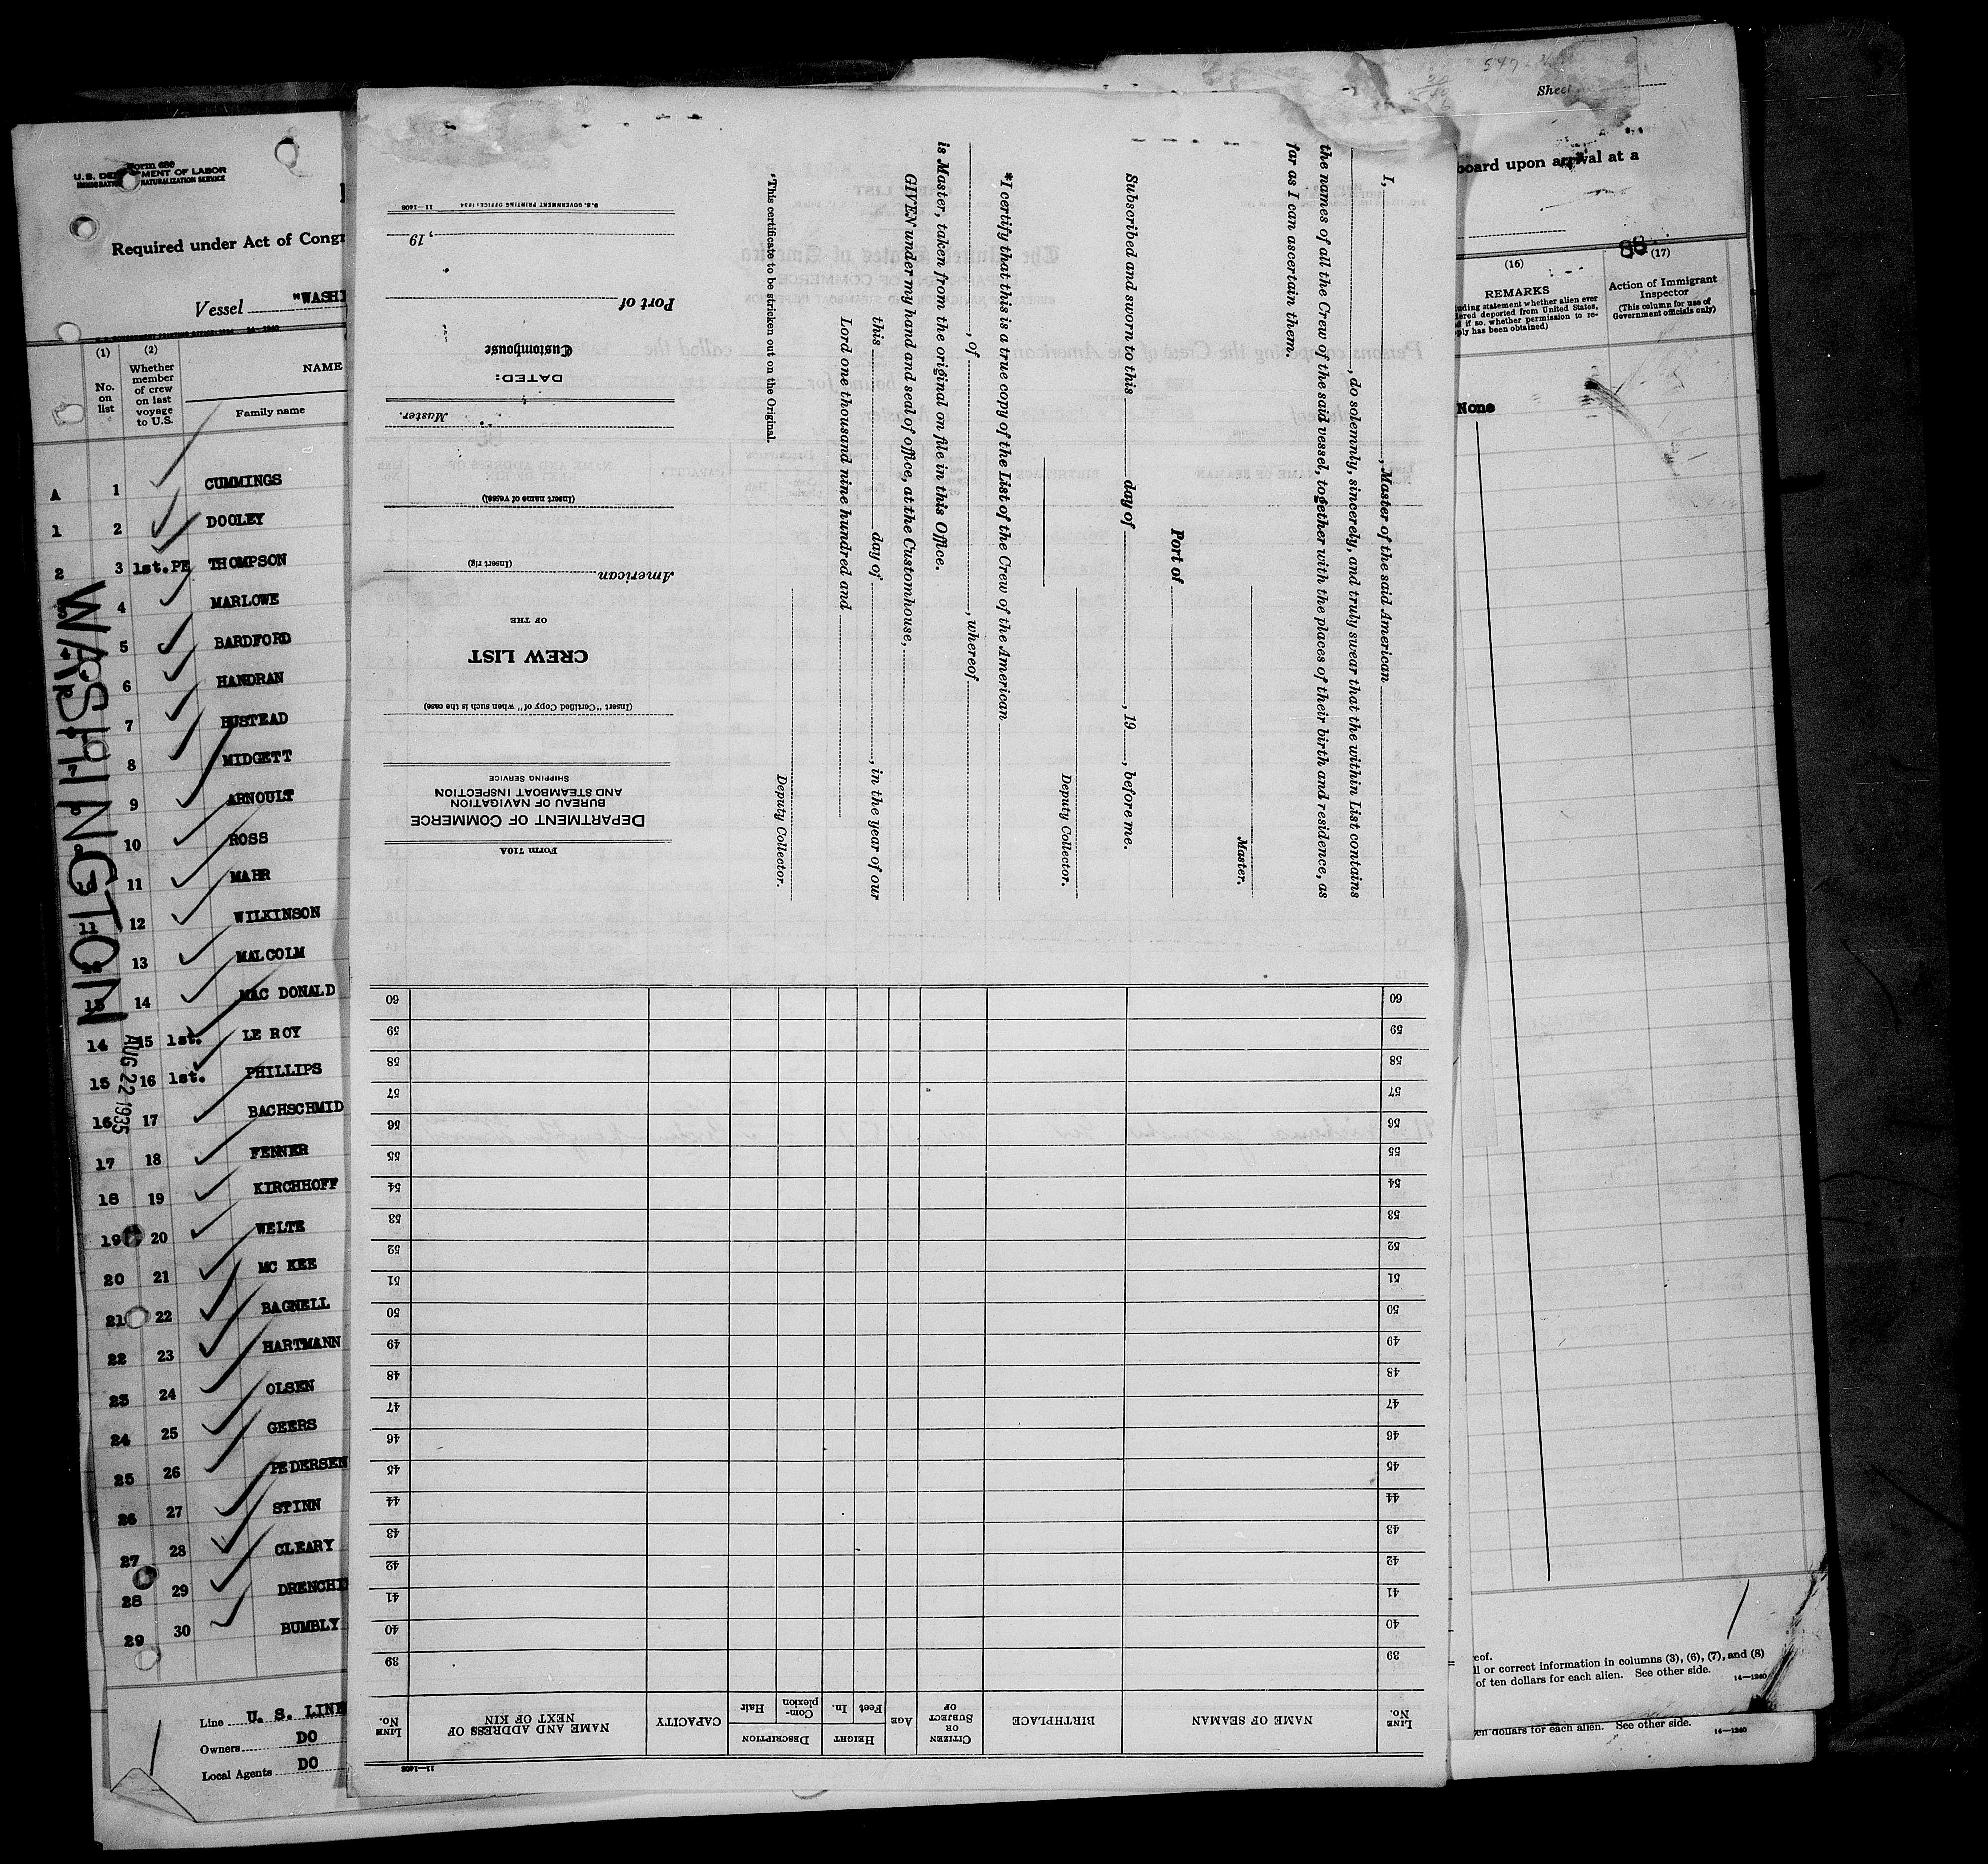 Form 680
U. S. DEPARTMENT OF LABOR
IMMIGRATION NATURALIZATION SERVICE
Required under Act of Congr
Vessel "WASHI
(1)
No.
on
list
(2)
Whether
member
of crew
on last
voyage
to U.S.
NAME
Family name
A 1 CUMMINGS
1 2 DOOLEY
2 3 1st.PE THOMPSON
4 MARLOWE
4 5 BARDFORD
6 HANDRAN
7 HUSTEAD
7 8 MIDGETT
9 ARNOULT
10 ROSS
10 11 MAHR
11 12 WILKINSON
13 MALCOLM
13 14 MAC DONALD
14 15 1st. LE ROY
15 16 1st. PHILLIPS
16 17 BACHSCHMID
17 18 FENNER
18 19 KIRCHHOFF
19 20 WELTE
20 21 MC KEE
21 22 BAGNELL
22 23 HARTMANN
23 24 OLSEN
24 25 GEERS
25 26 PEDERSEN
26 27 STINN
27 28 CLEARY
28 29 DRENCHI
29 30 BUMBLY
WASHINGTON
AUG 22 1935
Line U. S. LINE
Owners DO
Local Agents DO
I, , Master of the said American
, do solemnly, sincerely, and truly swear that the within List contains
the names of all the Crew of the said vessel, together with the places of their birth and residence, as
far as I can ascertain them.
Master.
Port of
Subscribed and sworn to this day of , 19 , before me.
Deputy Collector.
*I certify that this is a true copy of the List of the Crew of the American
, of , whereof
is Master, taken from the original on file in this Office.
GIVEN under my hand and seal of office, at the Customhouse,
this day of , in the year of our
Lord one thousand nine hundred and
Deputy Collector.
*This certificate to be stricken out on the Original.
Form 710A
DEPARTMENT OF COMMERCE
BUREAU OF NAVIGATION
AND STEAMBOAT INSPECTION
SHIPPING SERVICE
(Insert "Certified Copy of" when such is the case)
CREW LIST
OF THE
American
(Insert rig)
(Insert name of vessel)
Master.
DATED:
Customhouse
Port of
, 19
U. S. GOVERNMENT PRINTING OFFICE: 1934 11—1408
11—1408
LINE
No.
NAME OF SEAMAN
BIRTHPLACE
CITIZEN
OR
SUBJECT
OF
AGE
HEIGHT
Feet
In.
DESCRIPTION
Com-
plexion
Hair
CAPACITY
NAME AND ADDRESS OF
NEXT OF KIN
LINE
No.
39 39
40 40
41 41
42 42
43 43
44 44
45 45
46 46
47 47
48 48
49 49
50 50
51 51
52 52
53 53
54 54
55 55
56 56
57 57
58 58
59 59
60 60
547
Sheet
board upon arrival at a
88
(16)
REMARKS
uding statement whether alien ever
ered deported from United States,
d if so, whether permission to re-
ply has been obtained)
(17)
Action of Immigrant
Inspector
(This column for use of
Government officials only)
None
reof.
ll or correct information in columns (3), (6), (7), and (8)
of ten dollars for each alien. See other side. 14—1240
ten dollars for each alien. See other side. 14—1240